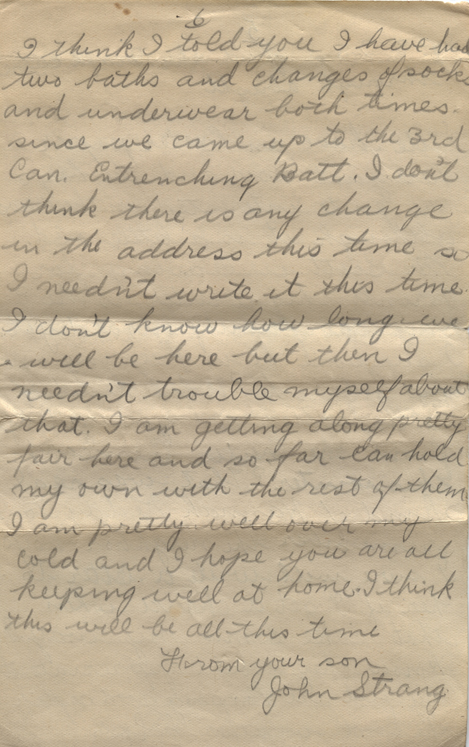 6
I think I told you I have had
two baths and changes of socks
and underwear both times.
since we came up to the 3rd
Can. Entrenching Batt. I don't
think there is any change
in the address this time so
I needn't write it this time.
I don't know how long we
will be here but then I
needn't trouble myself about
that. I am getting along pretty
fair here and so far can hold
my own with the rest of them
I am pretty well over my
cold and I hope you are all
keeping well at home. I think
this will be all this time
From your son
John Strang